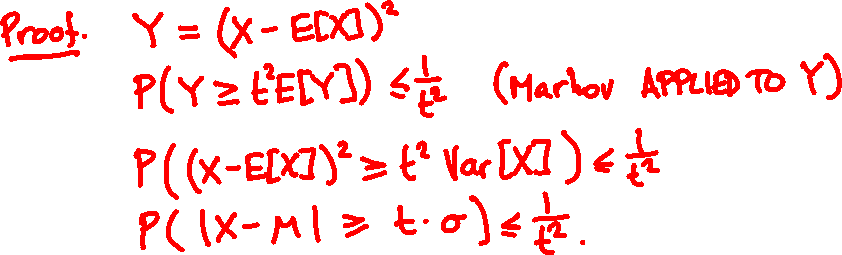 Proof. Y = (X - E[X])²
P(Y ≥ t²E[Y]) ≤ 1/t² (Markov APPLIED TO Y)
P((X-E[X])² ≥ t² Var[X]) ≤ 1/t²
P(|X-M| ≥ t·σ) ≤ 1/t².